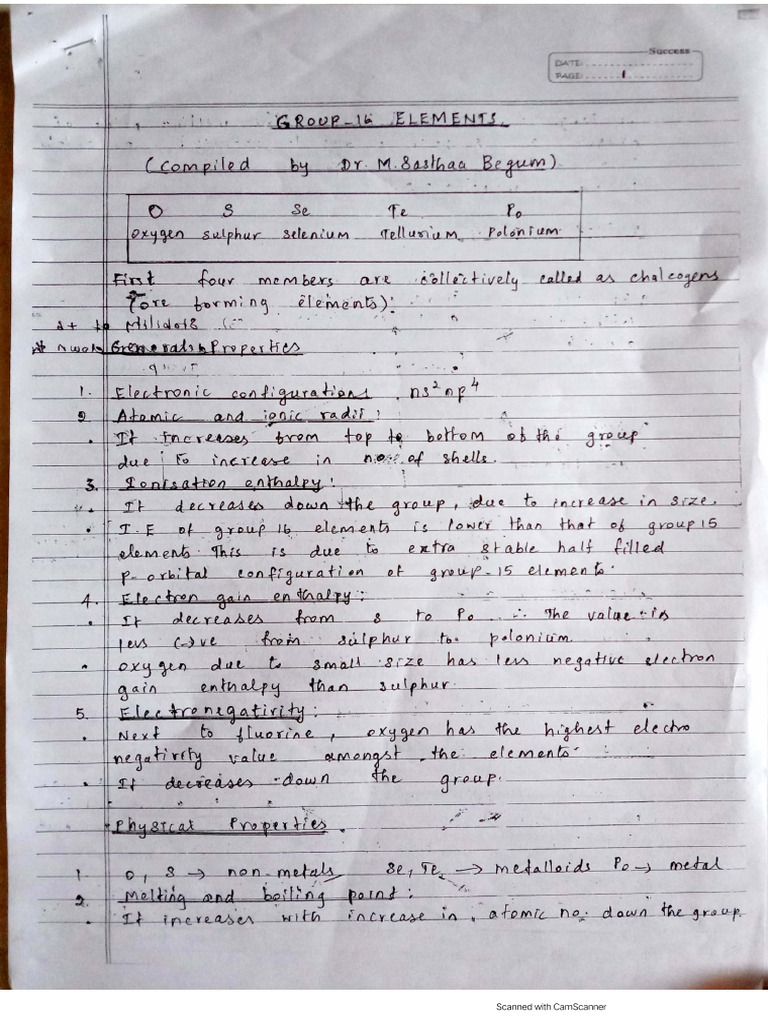 Success
DATE:
PAGE: 1
GROUP-16 ELEMENTS
(Compiled by Dr. M. Sasthaa Begum)
O S Se Te Po
Oxygen sulphur selenium Tellurium Polonium
First four members are collectively called as chalcogens
(ore forming elements).
General Properties
1. Electronic configurations ns² np⁴
2. Atomic and ionic radii:
• It increases from top to bottom of the group
due to increase in no of shells.
3. Ionisation enthalpy:
• It decreases down the group, due to increase in size.
• I.E of group 16 elements is lower than that of group 15
elements. This is due to extra stable half filled
p-orbital configuration of group-15 elements.
4. Electron gain enthalpy:
• It decreases from S to Po ∴ The value is
less (-)ve from sulphur to polonium.
• oxygen due to small size has less negative electron
gain enthalpy than sulphur.
5. Electronegativity:
• Next to fluorine, oxygen has the highest electro
negativity value amongst the elements.
• It decreases down the group.
Physical Properties
1. O, S → non-metals Se, Te → metalloids Po → metal
2. Melting and boiling point:
• It increases with increase in atomic no. down the group.
Scanned with CamScanner